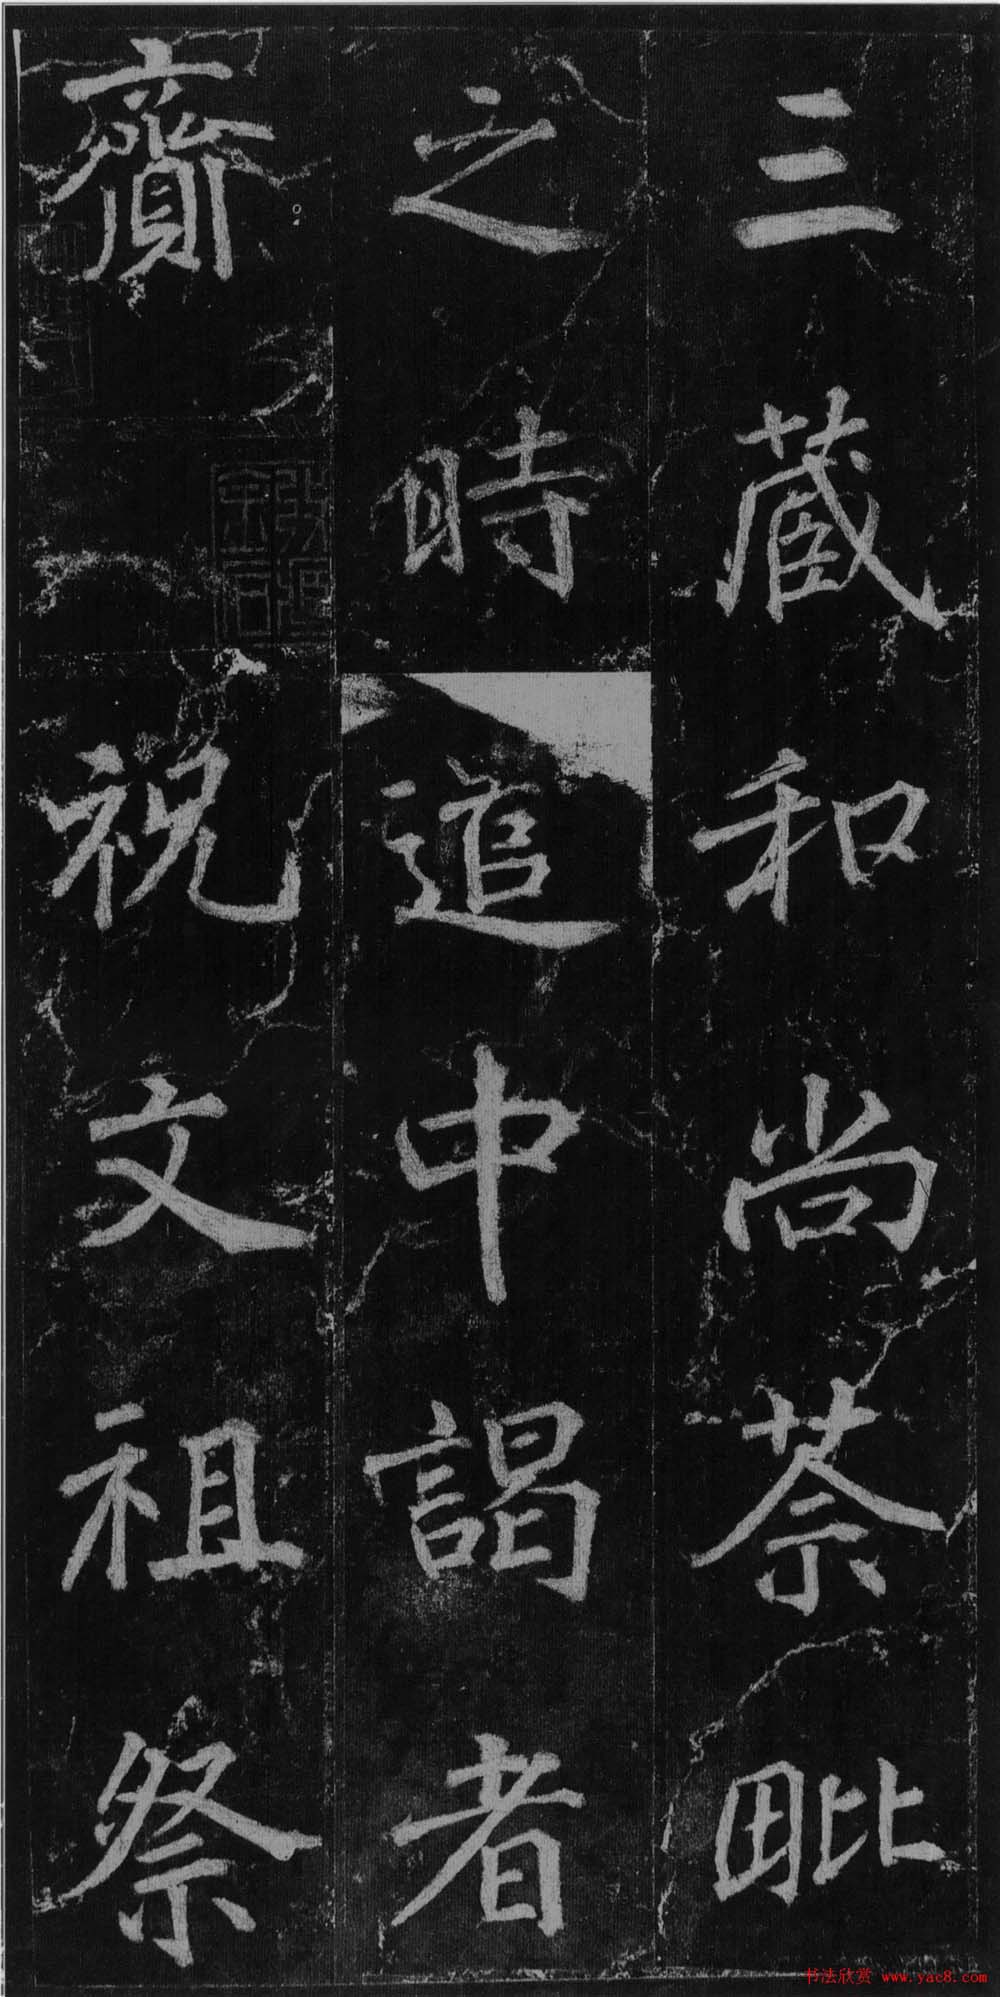 三藏和尚荼毗
之時遣中謁者
齎祝文祖祭
书法欣赏 www.yac8.com